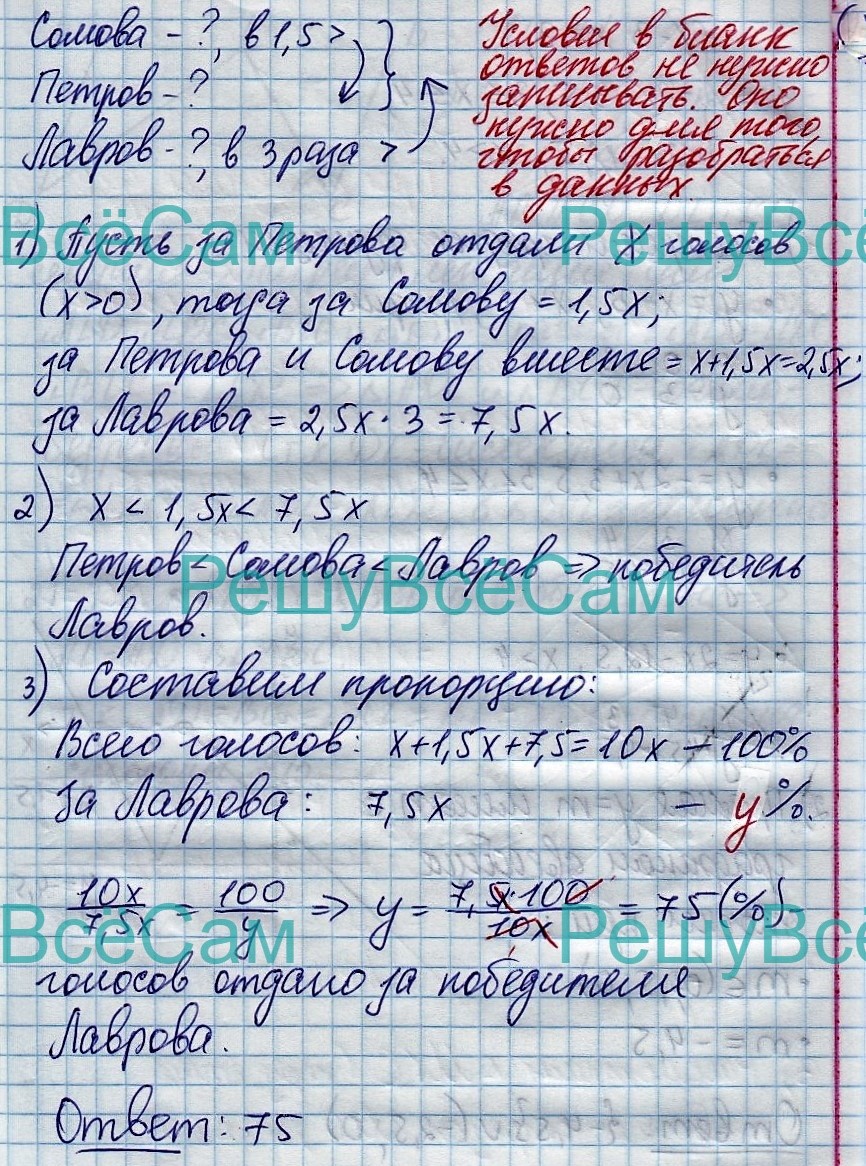 Сомова - ?, в 1,5 >
Петров - ?
Лавров - ?, в 3 раза >
Условия в бланк
ответов не нужно
записывать. Оно
нужно для того,
чтобы разобраться
в данных.
ВсёСам РешуВсё
1) Пусть за Петрова отдали x голосов
(x>0), тогда за Сомову = 1,5x;
за Петрова и Сомову вместе = x+1,5x=2,5x;
за Лаврова = 2,5x · 3 = 7,5x.
2) x < 1,5x < 7,5x
Петров < Сомова < Лавров => победитель
РешуВсёСам
Лавров.
3) Составим пропорцию:
Всего голосов: x+1,5x+7,5=10x - 100%
За Лаврова: 7,5x - y%.
10x/7,5x = 100/y => y = 7,5x·100/10x = 75(%)
ВсёСам РешуВсё
голосов отдано за победителя
Лаврова.
Ответ: 75